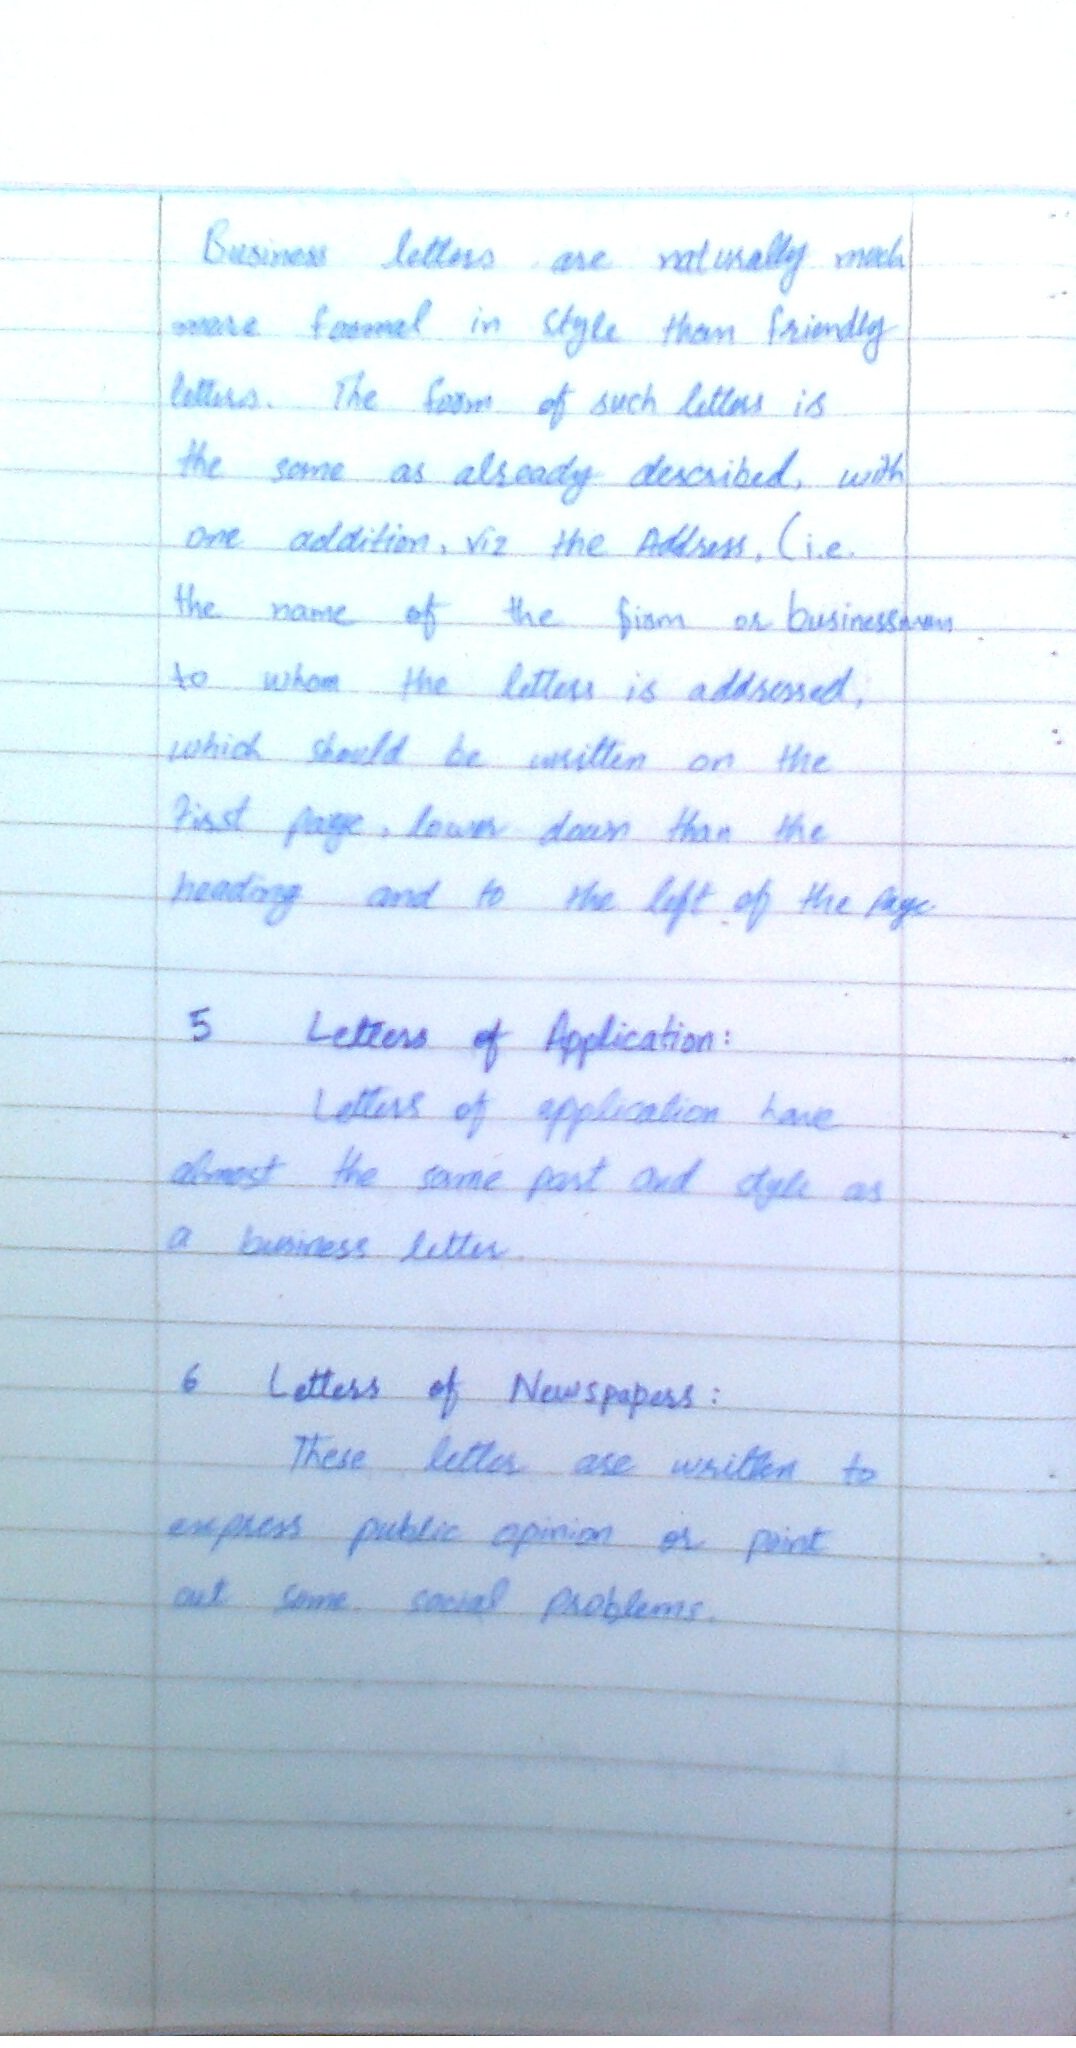 Business letters are naturally much
more formal in style than friendly
letters. The form of such letters is
the same as already described, with
one addition, viz the Address, (i.e.
the name of the firm or businessman
to whom the letters is addressed,
which should be written on the
First page, lower down than the
heading and to the left of the page
5 Letters of Application:
Letters of application have
almost the same part and style as
a business letter.
6 Letters of Newspapers:
These letter are written to
express public opinion or point
out some social problems.